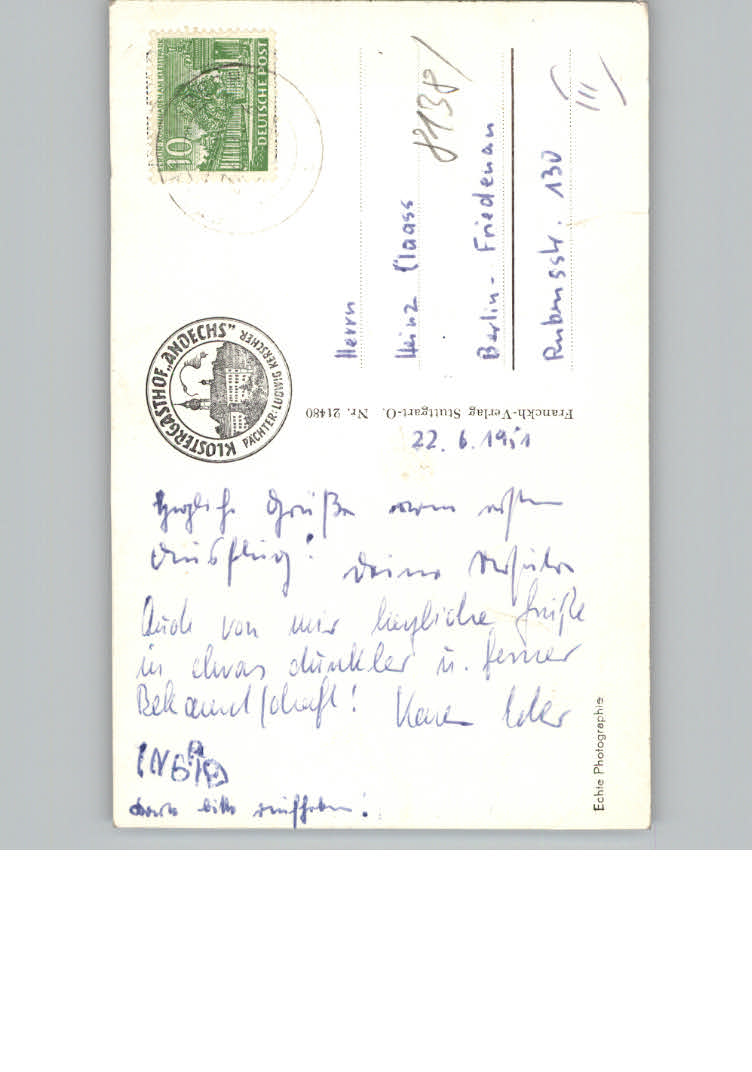 DEUTSCHE POST
10
KLOSTERGASTHOF „ANDECHS"
PÄCHTER: LUDWIG KERSCHER
8138/
III
Herrn
Heinz Claass
Berlin - Friedenau
Rubensstr. 130
Franckh-Verlag Stuttgart-O. Nr. 21480
22. 6. 1951
Herzliche Grüße vom ersten
Ausflug! Deine
Auch von mir herzliche Grüße
in etwas dunkler u. ferner
Bekanntschaft!
INGRID
Karte bitte aufheben!
Echte Photographie